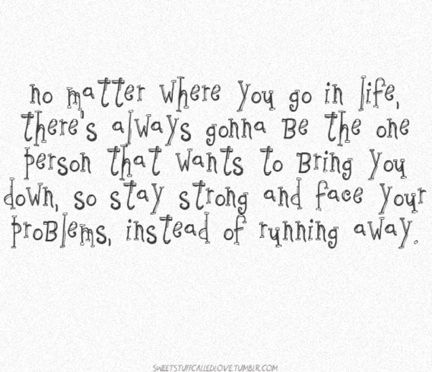 no matter where you go in life,
there's always gonna Be the one
person that wants to Bring you
down, so stay strong and face your
proBlems, instead of running away.
SWEETSTUFFCALLEDLOVE.TUMBLR.COM